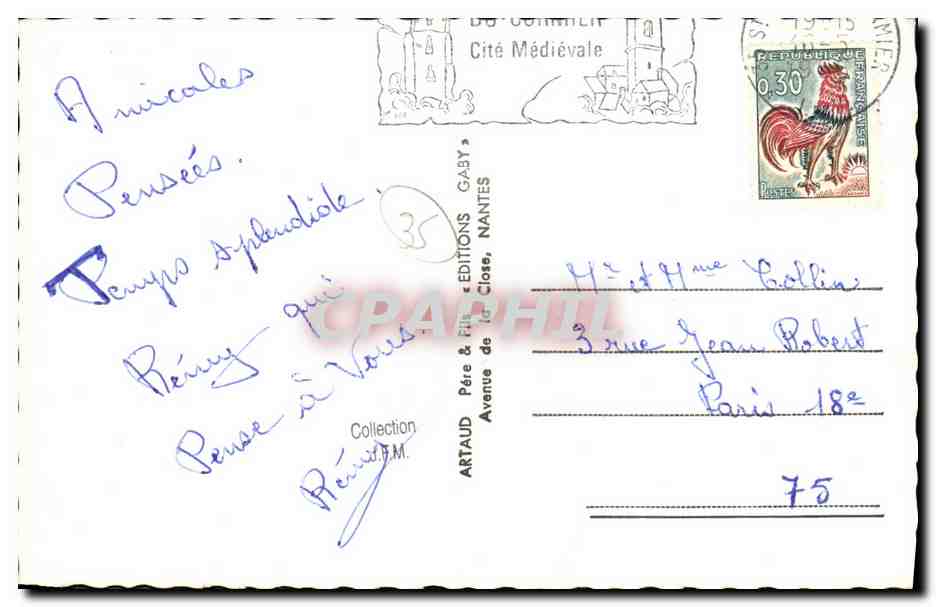 DU CORMIER
Cité Médiévale
19-15
RÉPUBLIQUE
FRANÇAISE
0,30
POSTES
Amicales
Pensées.
Temps splendide.
Rémy qui
Pense à Vous.
Rémy
35
Collection
J.F.M.
ARTAUD Père & Fils « EDITIONS GABY »
Avenue de la Close, NANTES
CPAPHIL
Mr et Mme Collin
3 rue Jean Robert
Paris 18e
75